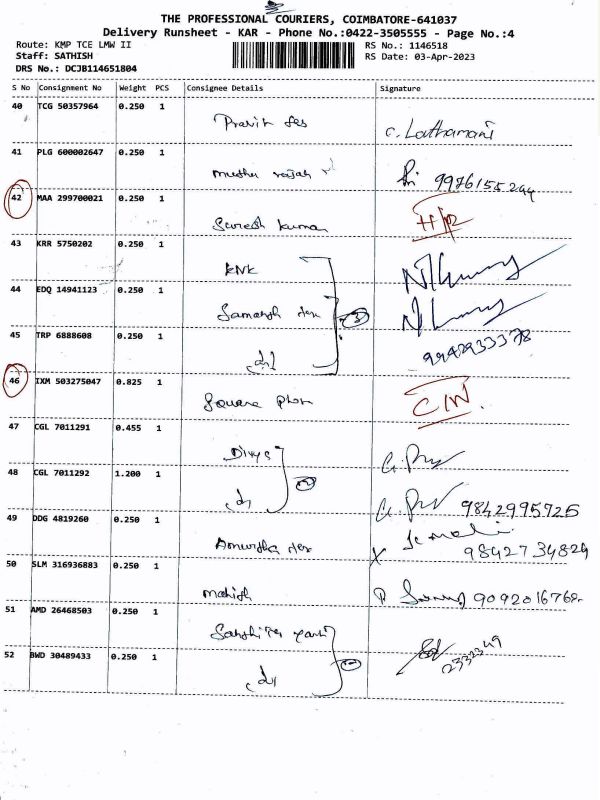 THE PROFESSIONAL COURIERS, COIMBATORE-641037
Delivery Runsheet - KAR - Phone No.:0422-3505555 - Page No.:4
Route: KMP TCE LMW II RS No.: 1146518
Staff: SATHISH RS Date: 03-Apr-2023
DRS No.: DCJB114651804
S No Consignment No Weight PCS Consignee Details Signature
40 TCG 50357964 0.250 1
C. Lathamani
41 PLG 600002647 0.250 1
9976155244
42 MAA 299700021 0.250 1
Suresh kumar
43 KRR 5750202 0.250 1
KNK
44 EDQ 14941123 0.250 1
45 TRP 6888608 0.250 1
9942933378
46 IXM 503275047 0.825 1
Square C/N.
47 CGL 7011291 0.455 1
Divya
48 CGL 7011292 1.200 1
9842995925
49 DDG 4819260 0.250 1
9842734824
50 SLM 316936883 0.250 1
51 AMD 26468503 0.250 1
52 BWD 30489433 0.250 1
2332349